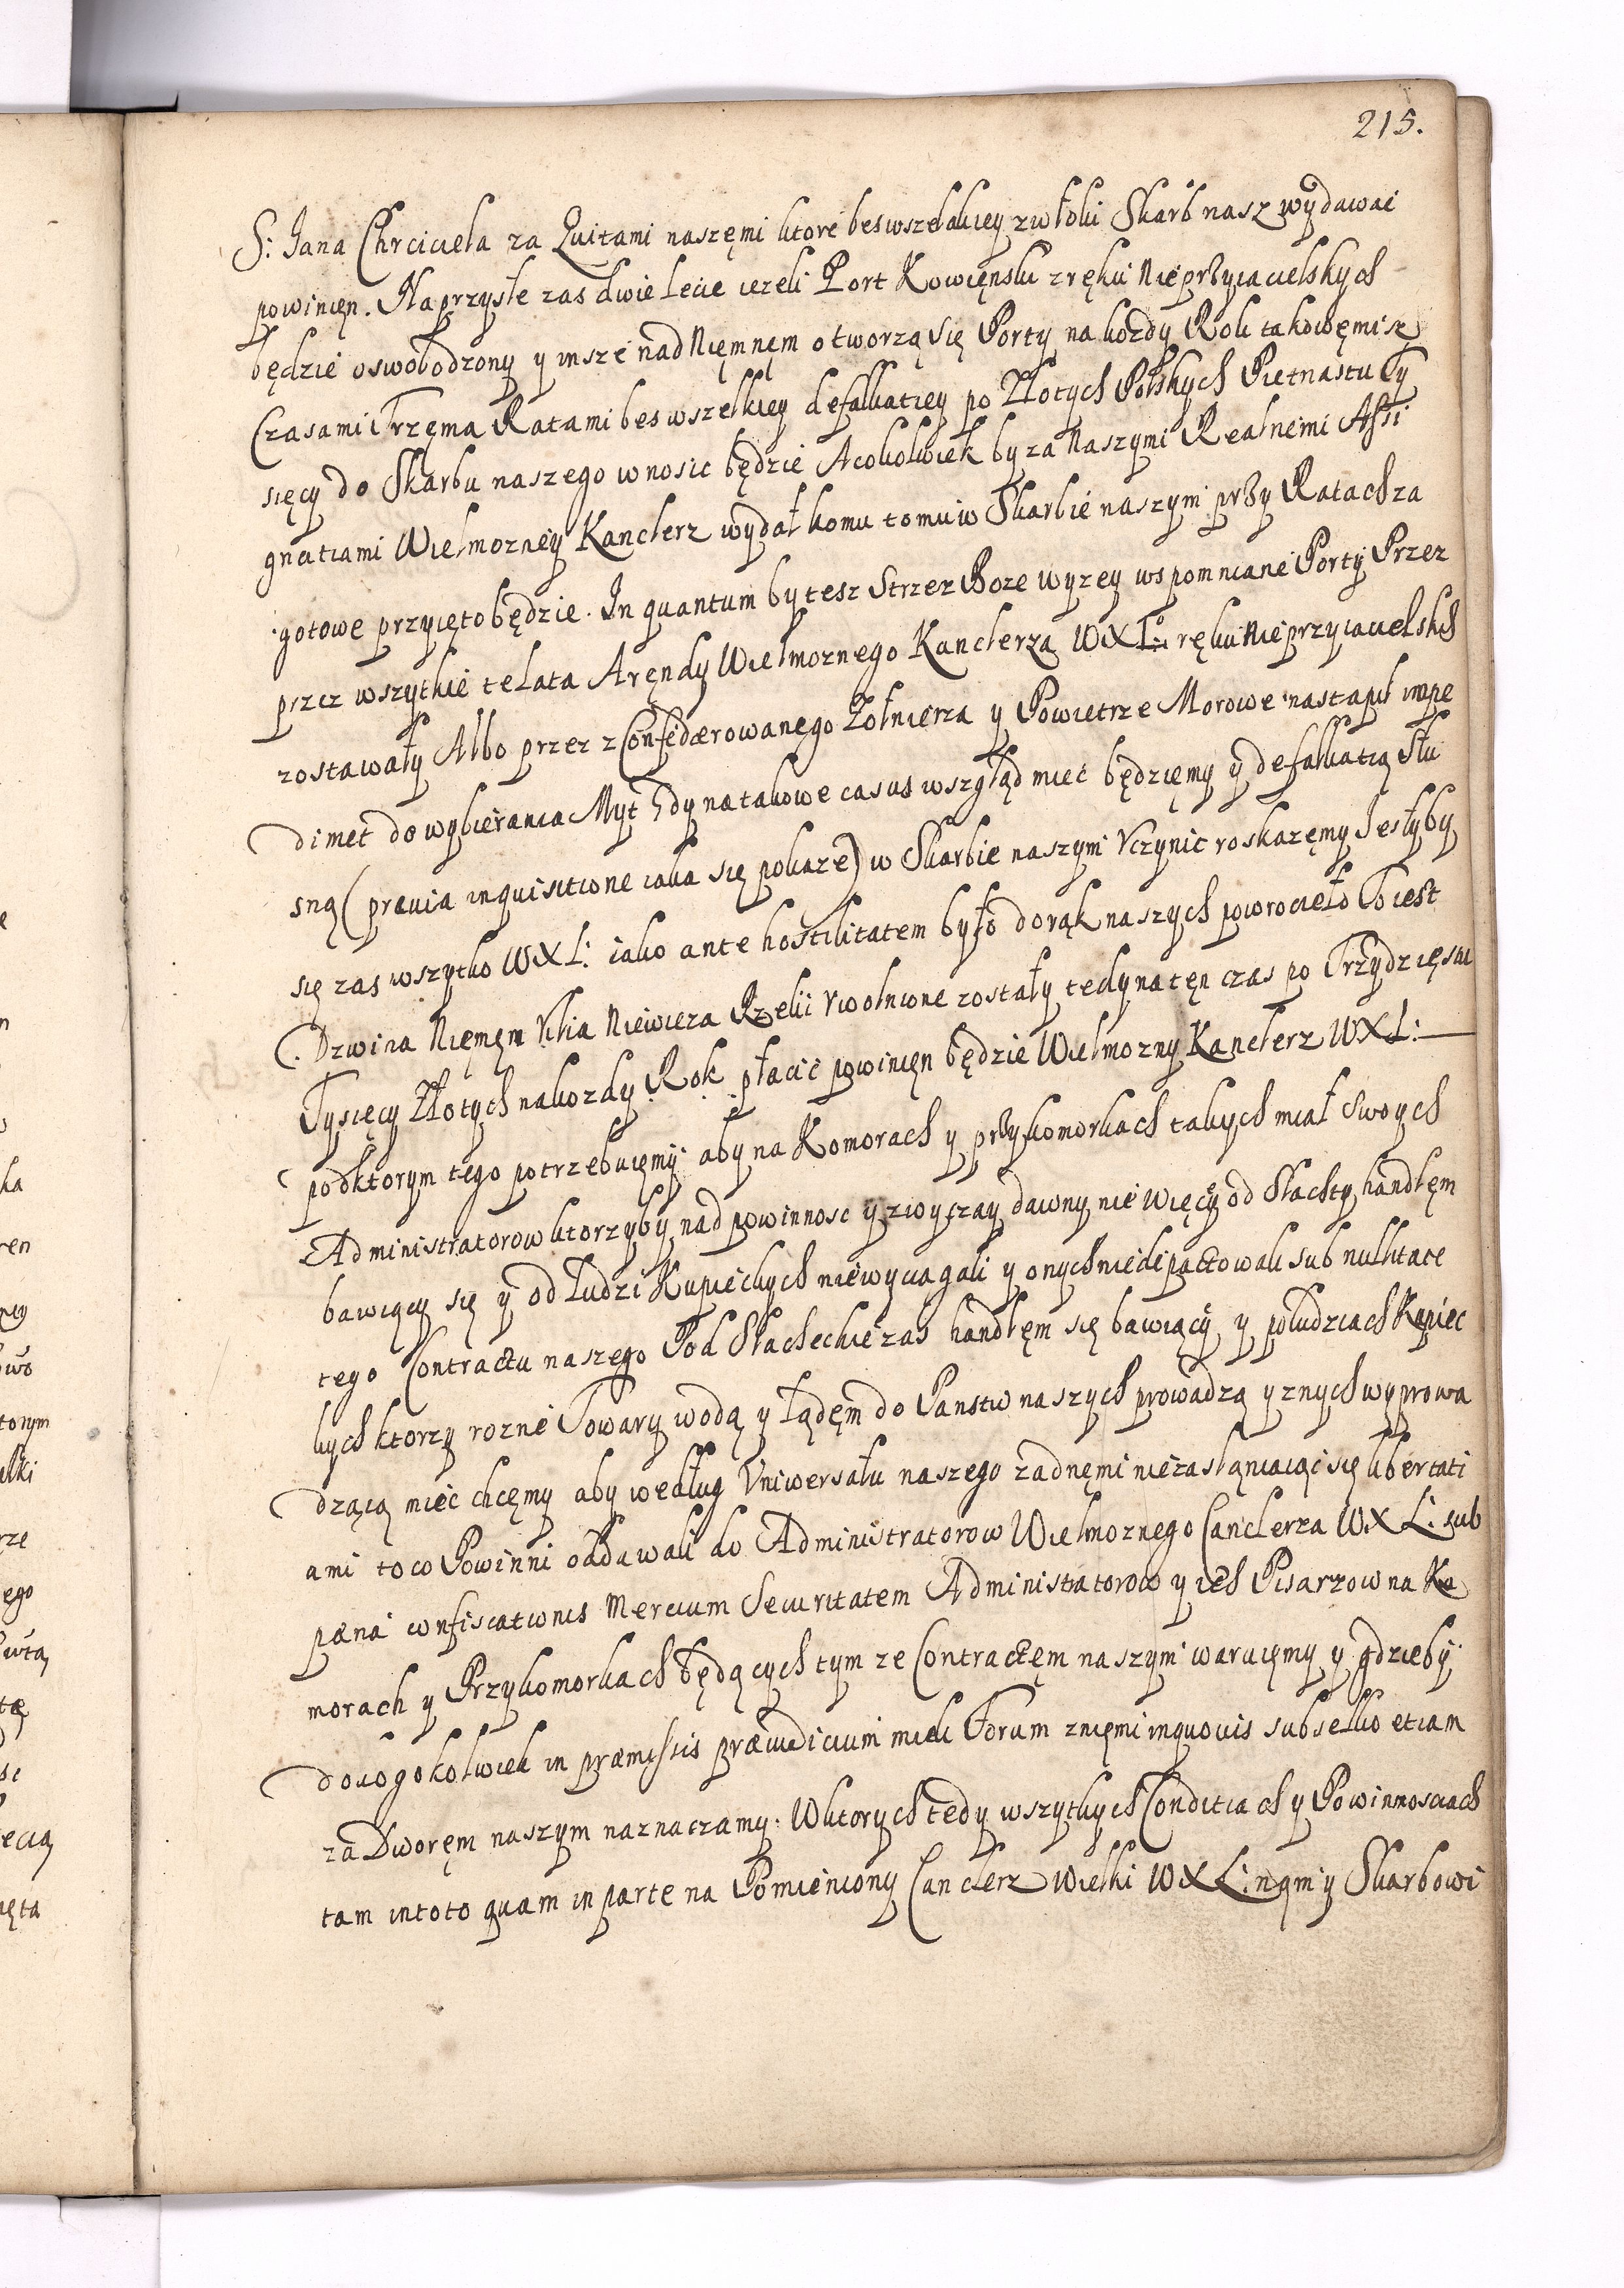 215.
S: Jana Chrciciela za Quitami naszęmi ktore beswszelakiey zwłoki Skarb nasz wydawac
powinięn. Naprzyszłe zas dwie lecie iezeli Port Kowięnski z ręku Nieprzyiacielskych
będzie oswobodzony y insze nad Nięmnęm otworzą się Porty na kozdy Rok takowęmisz
Czasami Trzęma Ratami bes wszelkiey defalkatiey po Złotych Polskych Pietnastu Ty
sięcy do Skarbu naszego wnosic będzie Acokolwiek by za Naszymi Realnemi Assi
gnatiami Wielmozney Kanclerz wydał komu to mu w Skarbie naszym przy Ratach za
gotowe przyięto będzie. In quantum by tesz Strzez Boze wyzey wspomniane Porty Przez
przez wszytkie te Lata Aręndy Wielmoznego Kanclerza WXLo ręku Nieprzyiacielskich
zostawały Albo przez zConfœderowanego Zołnierza y Powietrze Morowe nastąpił impe
dimet do wybierania Myt Gdy na takowe casus wszgląd miec będzięmy y defalkatią słu
sną (prævia inquisitione iaka się pokaze) w Skarbie naszym Vczynic roskazęmy Jesłyby
się zas wszytko WXL: iako ante hostilitatem było do rąk naszych powrocieło To iest
Dzwina Nięmęn Vilia Niewieza Rzeki Vwolnione zostały tedy na tęn czas po Trzydzięsci
Tysięcy Złotych na kozdy Rok płacic powinięn będzie Wielmozny Kanclerz WXL:
po ktorym tego potrzebuięmy aby na Komorach y przykomorkach takych miał Swoych
Administratorow ktorzyby nad powinnosc y zwyczay dawny nie Więcy od Slachty handlęm
bawiący się y od Ludzi Kupieckych niewyciągali y onych niedepactowali sub nullitate
tego Contractu naszego Pod Slacheckie zas handlęm się bawiący y po ludziach Kupiec
kych ktorzy rozne Towary wodą y lądęm do Panstw naszych prowadzą y znych wyprowa
dzaią miec chcęmy aby według Vniwersału naszego zadnęmi niezasłaniaiąc się libertati
ami to co Powinni oddawali do Administratorow Wielmoznego Canclerza WXL: sub
pæna confiscationis Mercium Securitatem Administatorow y ich Pisarzow na Ko
morach y Przykomorkach będących tym ze Contractęm naszym waruięmy y gdzieby
do kogokolwiek in præmissis præiudicium mieli Forum znięmi in quovis subsellio etiam
za Dworęm naszym naznaczamy. W ktorych tedy wszytkych Conditiach y Powinnosciach
tam in toto quam in parte na Pomieniony Canclerz Wielki WXL: nąm y Skarbowi